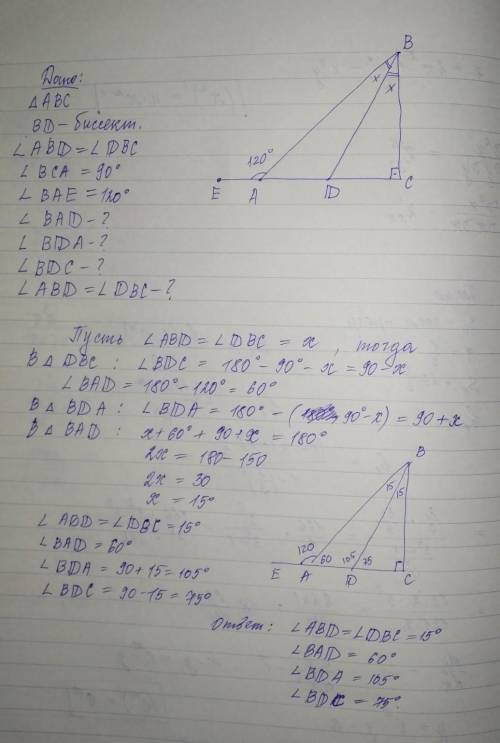 Дано:
△ABC
BD – биссект.
∠ABD = ∠DBC
∠BCA = 90°
∠BAE = 120°
∠BAD – ?
∠BDA – ?
∠BDC – ?
∠ABD = ∠DBC – ?
B
x
x
120°
E A D C
Пусть ∠ABD = ∠DBC = x, тогда
В △ DBC : ∠BDC = 180° – 90° – x = 90 – x
∠BAD = 180° – 120° = 60°
В △ BDA : ∠BDA = 180° – (90° – x) = 90 + x
В △ BAD : x + 60° + 90 + x = 180°
2x = 180 – 150
2x = 30
x = 15°
∠ABD = ∠DBC = 15°
∠BAD = 60°
∠BDA = 90 + 15 = 105°
∠BDC = 90 – 15 = 75°
B
15 15
120 60 105 75
E A D C
Ответ: ∠ABD = ∠DBC = 15°
∠BAD = 60°
∠BDA = 105°
∠BDC = 75°